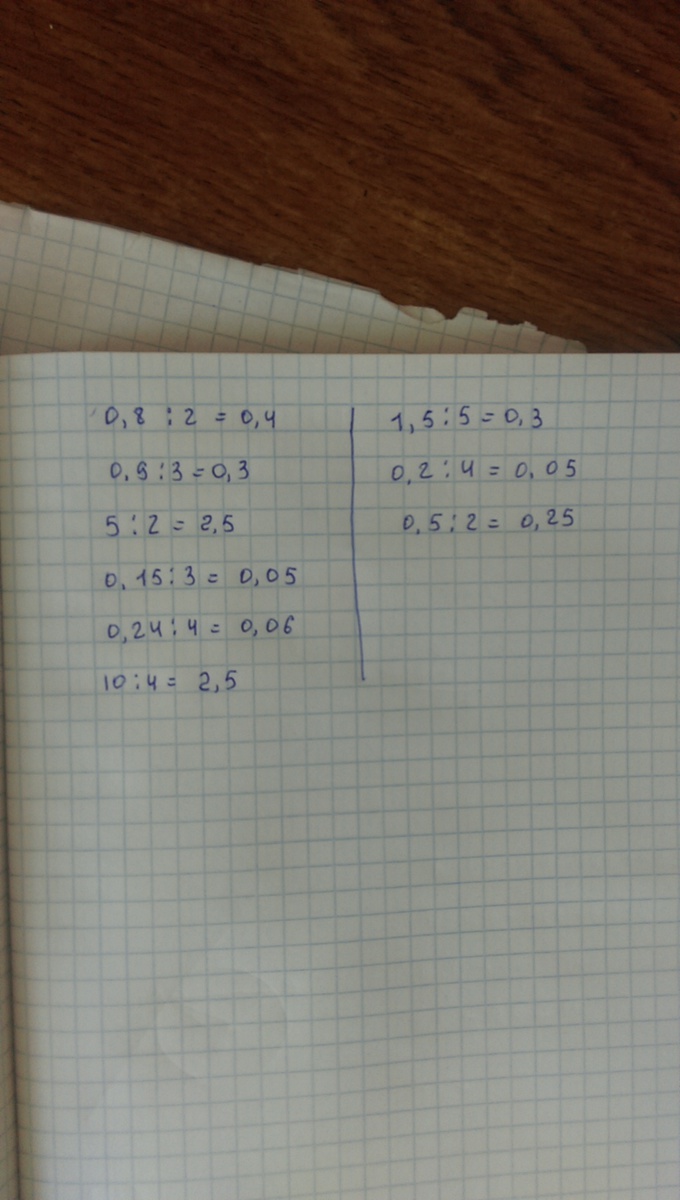 0,8 : 2 = 0,4
0,9 : 3 = 0,3
5 : 2 = 2,5
0,15 : 3 = 0,05
0,24 : 4 = 0,06
10 : 4 = 2,5
1,5 : 5 = 0,3
0,2 : 4 = 0,05
0,5 : 2 = 0,25